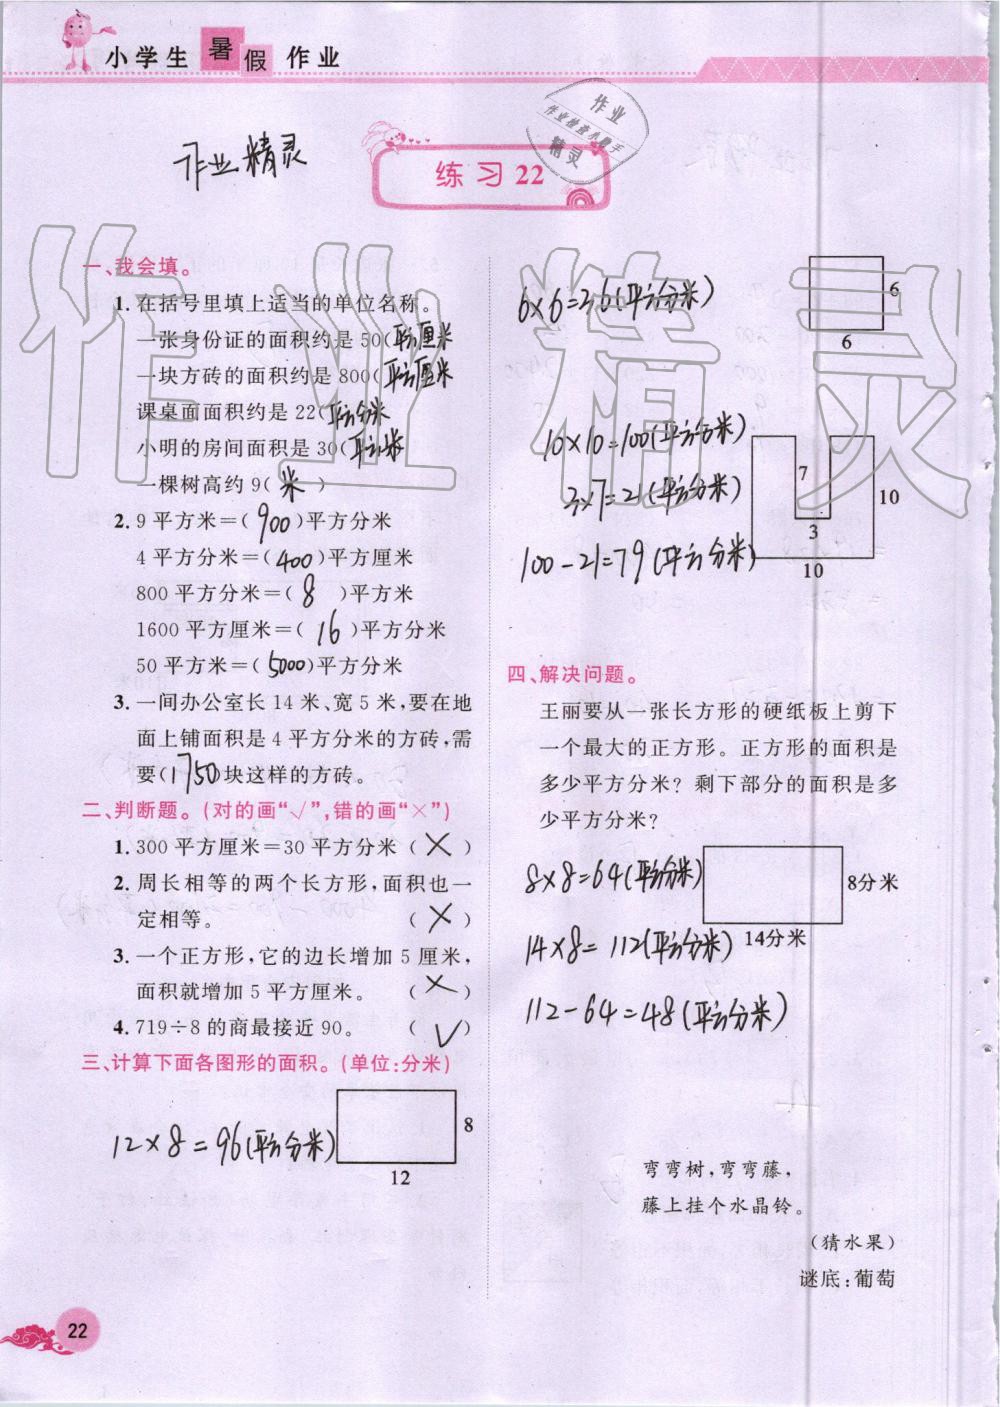 小学生暑假作业
作业
作业检查小帮手
精灵
作业精灵
练习22
作业精灵
一、我会填。
1. 在括号里填上适当的单位名称。
一张身份证的面积约是50(平方厘米
一块方砖的面积约是800(平方厘米
课桌面面积约是22(平方分米
小明的房间面积是30(平方米
一棵树高约9( 米 )
2. 9平方米=( 900 )平方分米
4平方分米=( 400 )平方厘米
800平方分米=( 8 )平方米
1600平方厘米=( 16 )平方分米
50平方米=( 5000 )平方分米
3. 一间办公室长14米、宽5米,要在地
面上铺面积是4平方分米的方砖,需
要( 1750 )块这样的方砖。
二、判断题。(对的画“√”,错的画“×”)
1. 300平方厘米=30平方分米 ( × )
2. 周长相等的两个长方形,面积也一
定相等。 ( × )
3. 一个正方形,它的边长增加5厘米,
面积就增加5平方厘米。 ( × )
4. 719÷8的商最接近90。 ( √ )
三、计算下面各图形的面积。(单位:分米)
12×8=96(平方分米)
8
12
6×6=36(平方分米)
6
6
10×10=100(平方分米)
3×7=21(平方分米)
100-21=79(平方分米)
7
10
3
10
四、解决问题。
王丽要从一张长方形的硬纸板上剪下
一个最大的正方形。正方形的面积是
多少平方分米?剩下部分的面积是多
少平方分米?
8×8=64(平方分米)
8分米
14×8=112(平方分米)
14分米
112-64=48(平方分米)
弯弯树,弯弯藤,
藤上挂个水晶铃。
(猜水果)
谜底:葡萄
22